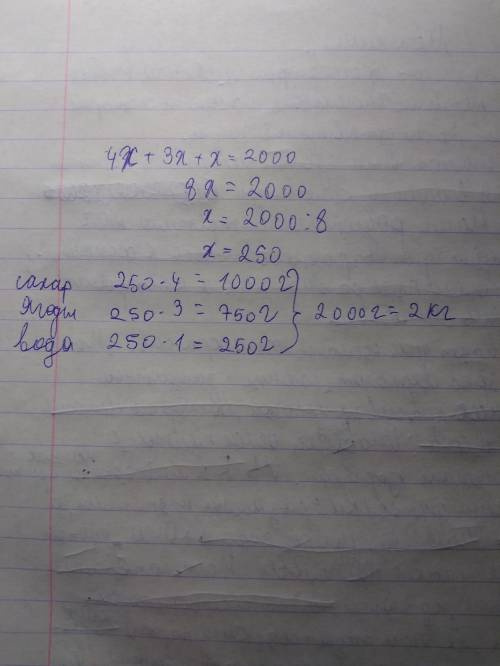 4x + 3x + x = 2000
8x = 2000
x = 2000 : 8
x = 250
сахар 250 · 4 = 1000г
Ягоды 250 · 3 = 750г } 2000г = 2 кг
вода 250 · 1 = 250г